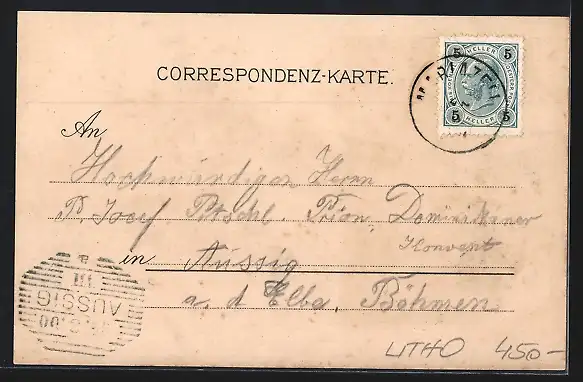 CORRESPONDENZ-KARTE.
5 HELLER 5
5 HELLER 5
MARIAZELL
An
Hochwürdigen Herrn
P. Josef Pitschl, Prior, Dominikaner
Konvent
in Aussig
a. d. Elbe, Böhmen
AUSSIG
LITHO 450-